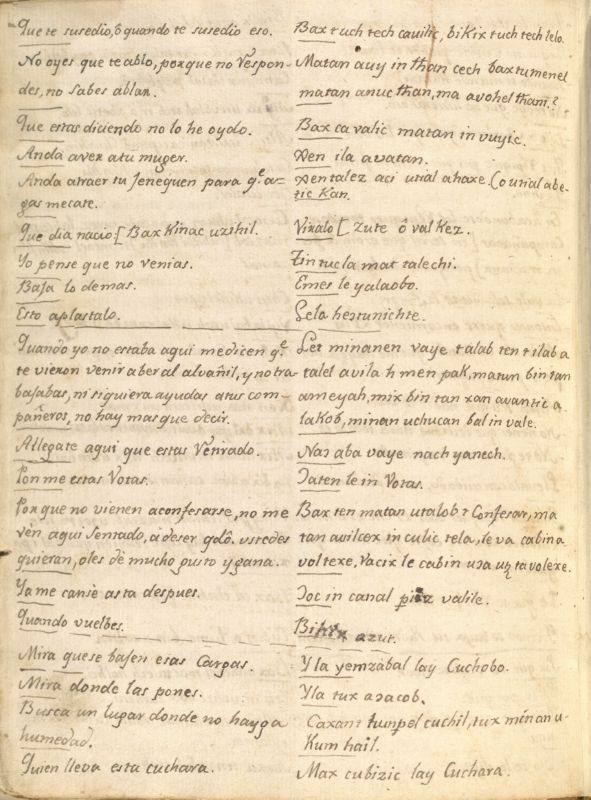 Que te susedio, ô quando te susedio eso.
Bax tuch tech cauilic, bikix tuch tech lelo.
No oyes que te ablo, porque no Vespon-
des, no sabes ablar.
Matan auy in than cech bax tu menel
matan anuc than, ma avohel thani.?
Que estas diciendo no lo he oydo.
Bax ca valic matan in vuyic.
Anda aver atu muger.
Xen ila avatan.
Anda atraer tu Jenequen para q.e a-
gas mecate.
Xen talez aci utial ahaxe. (o utial abe-
tic Kan.
Que dia nacio: [ Bax Kinac uzihil.
Viralo [ zute ô val Kez.
Yo pense que no venias.
Tin tucla mat talechi.
Baja lo demas.
Emes le yalaobo.
Esto aplastalo.
Lela hestunichte.
Quando yo no estaba aqui me dicen q.e
te vieron venir aber al alvañil, y no tra-
bajabas, ni siguiera ayudas atus com-
pañeros, no hay mas que decir.
Let minanen vaye talab ten tilab a
talel avila h men pak, matun bin tan
ameyah, mix bin tan xan avantic a
lakob, minan uchucan bal in vale.
Allegate aqui que estas Vetirado.
Naɔ aba vaye nach yanech.
Pon me estas Votas.
Ɔaten le in Votas.
Por que no vienen aconfesarse, no me
ven aqui Sentado, à deser gdô. ustedes
quieran, oles dè mucho gusto y gana.
Bax ten matan utalob? Confesar, ma
tan avilcex in culic tela, le va cabin a
voltexe, Vacix le cabin uɔa uɔ ta volexe.
Ya me cansè asta despues.
Ɔoc in canal valile.
Quando vuelbes.
Bikix azut.
Mira quese bajen esas Cargas.
Yla yemzabal lay Cuchobo.
Mira donde las pones.
Yla tux aɔacob.
Busca un lugar donde no hayga
humedad.
Caxant tunpel cuchil, tux minan u-
Kum hail.
Quien lleva esta cuchara.
Max cubizic lay Cuchara.